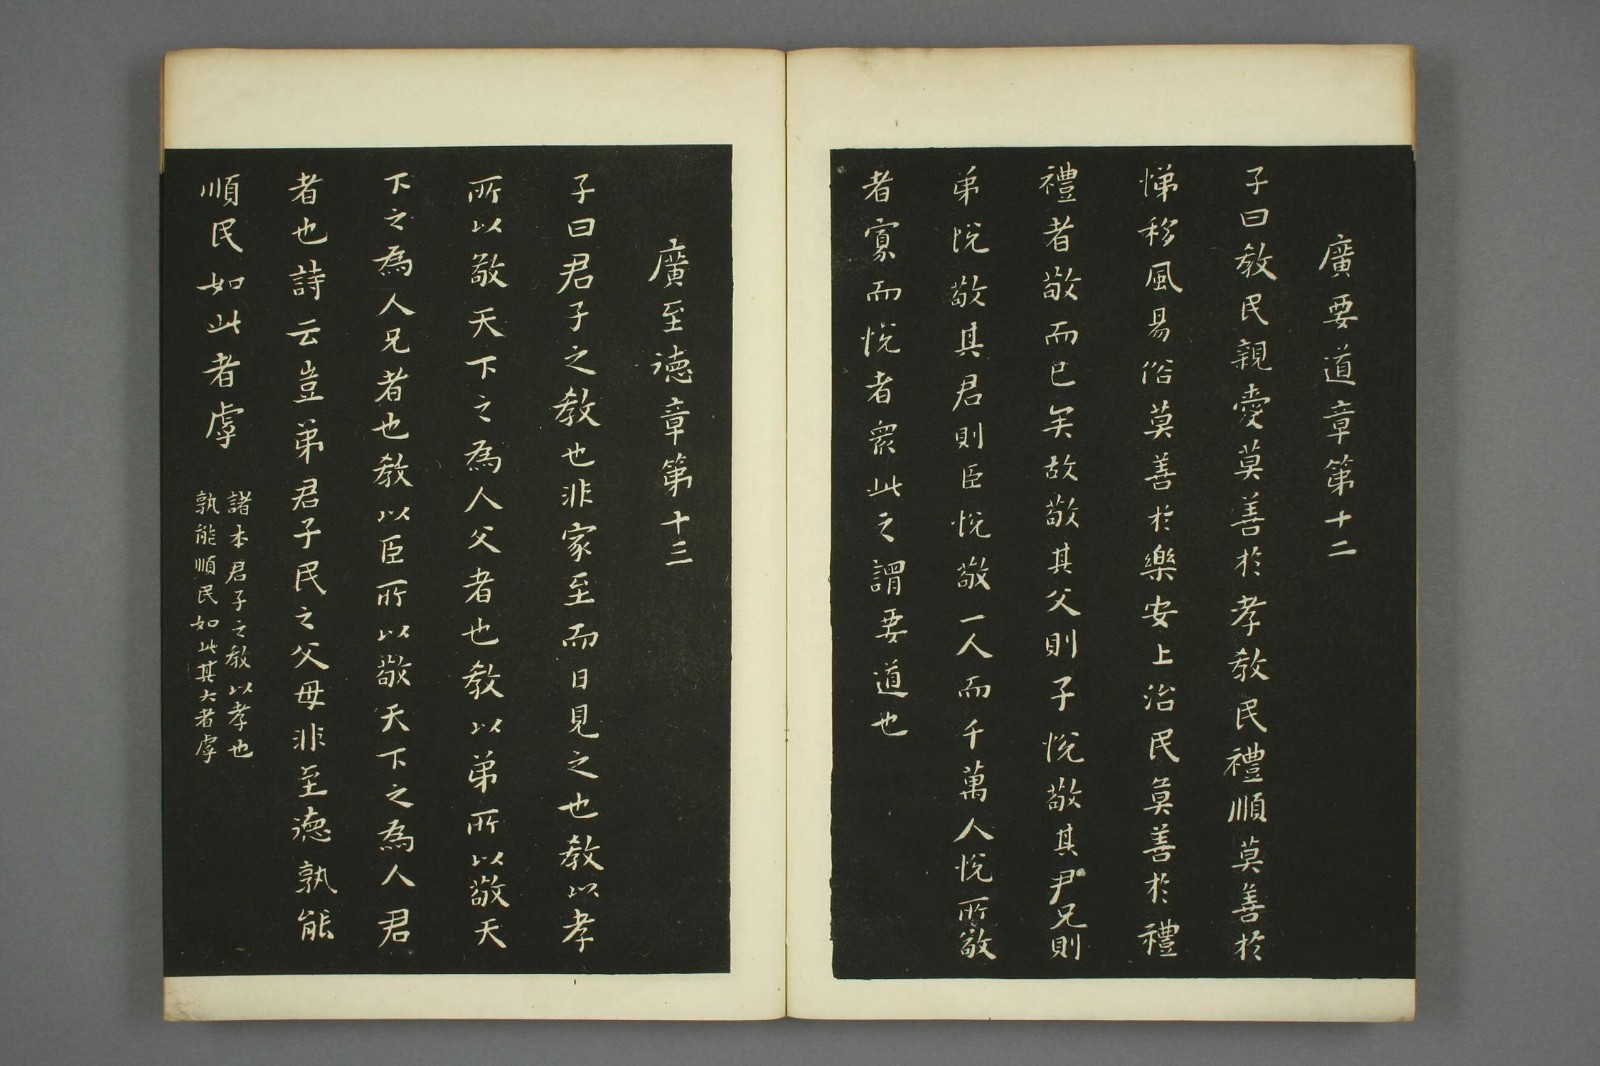 廣要道章第十二
子曰教民親愛莫善於孝教民禮順莫善於
悌移風易俗莫善於樂安上治民莫善於禮
禮者敬而已矣故敬其父則子悅敬其兄則
弟悅敬其君則臣悅敬一人而千萬人悅所敬
者寡而悅者衆此之謂要道也
廣至德章第十三
子曰君子之教也非家至而日見之也教以孝
所以敬天下之為人父者也教以弟所以敬天
下之為人兄者也教以臣所以敬天下之為人君
者也詩云豈弟君子民之父母非至德孰能
順民如此者虖
諸本君子之教以孝也
孰能順民如此其大者虖